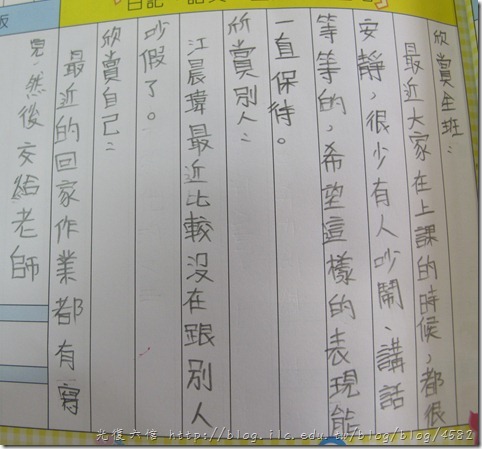 欣賞全班：
最近大家在上課的時候，都很
安靜，很少有人吵鬧、講話
等等的，希望這樣的表現能
一直保待。
所賞別人：
江晨瑋最近比較沒在跟別人
吵假了。
欣賞自己：
最近的回家作業都有寫
完，然後交給老師
光復六信 http://blog.ilc.edu.tw/blog/blog/4582